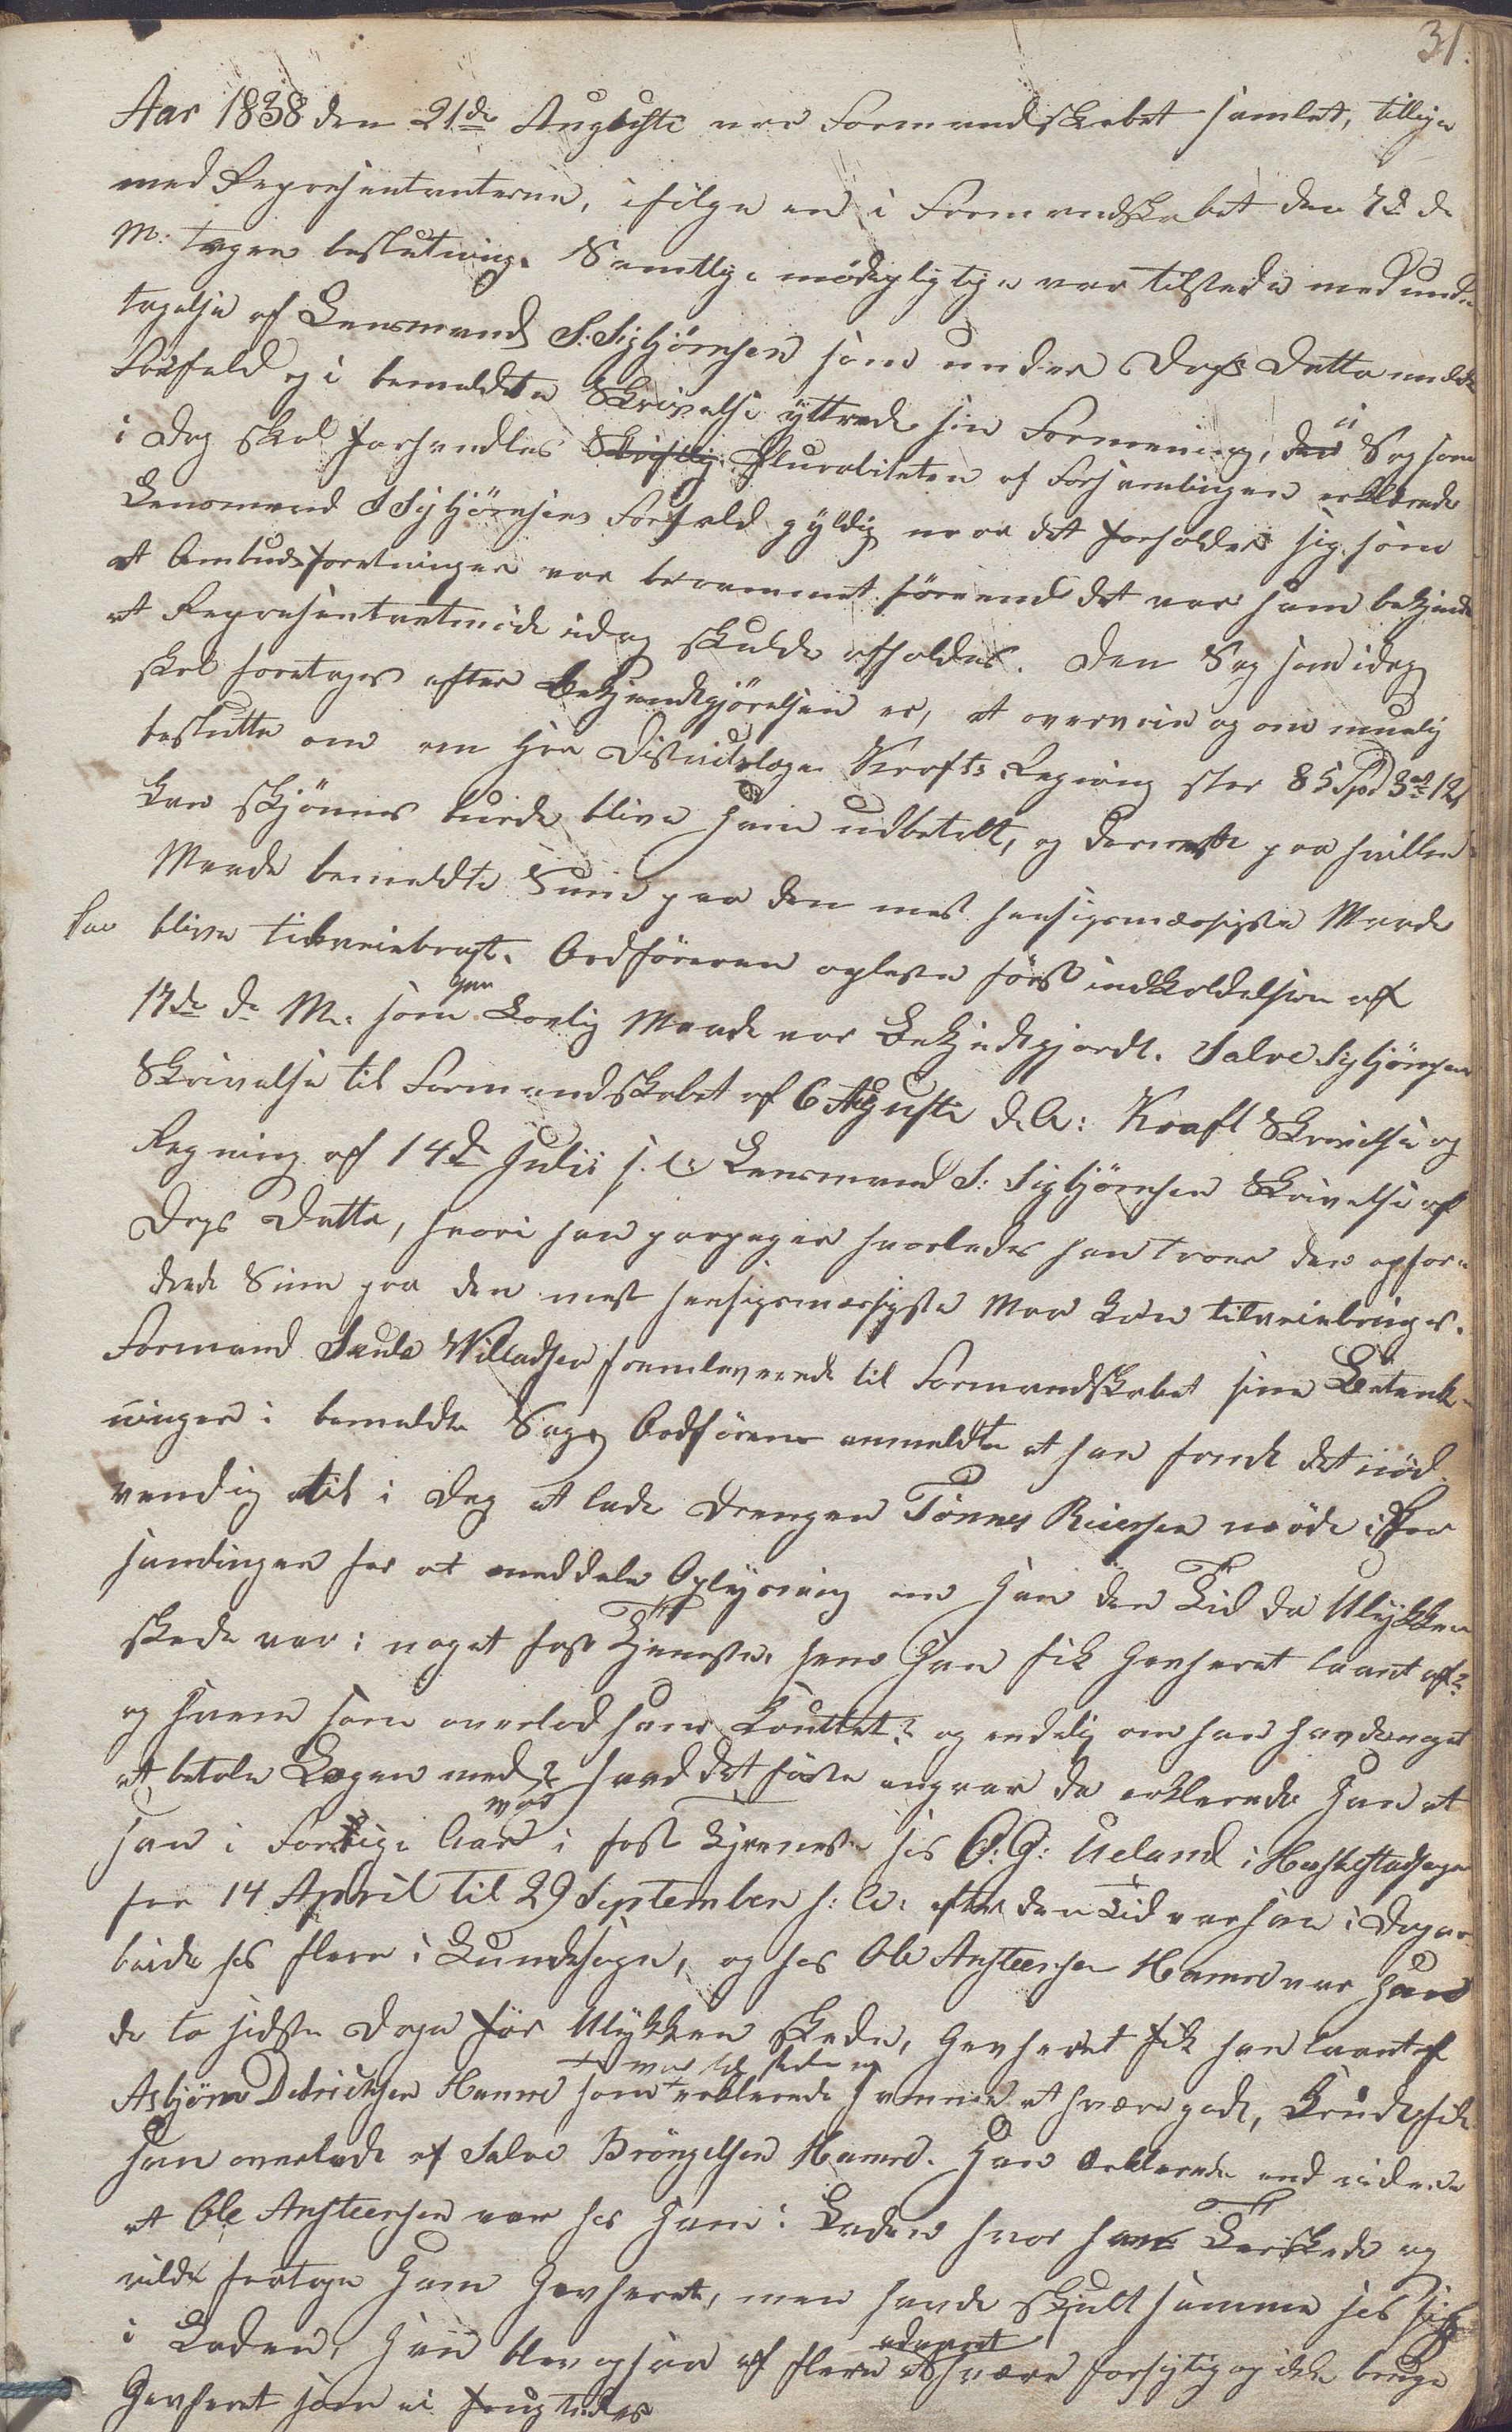 31.
Aar 1838 den 21de Augusti var Formandskabet samlet, tillige
med Representanterne, ifølge en i Formandskabet den 7de d.
M: tagen beslutning. Samtlige mødepligtige var tilstede med und-
tagelse af Lensmand S. Sigbjørnsen som under Dags Datto meldte
Forfald og i bemeldte Skrivelse yttrede sin Formening, i den Sag som
i Dag skal forhandles Skriftlig. Pluraliteten af Forsamlingen erklærede
Lensmand S Sigbjørnsens Forfald gyldig naar det forholder sig som
at Ombudsforetninger var berammet førend det var ham bekjendt
at Representantmøde idag skulde afholdes. Den Sag som idag
skal foretages efter Bekjendtgjørelsen er, at overveie og om muelig
beslutte om en Hr Districtslæge Krafts Regning stor 85 Spd 3ort 12s
kan skjønnes burde blive ham udbetalt, og dernæst paa hvilken
Maade bemeldte Sum paa den mest hensigsmæssigste Maade
kan blive tilveiebragt. Ordføreren oplæste først indkaldelsen af
17de d. M. som paa Lovlig Maade var Bekjendtgjordt. Salve Sigbjørnsens
Skrivelse til Formandskabet af 6 Augusti d. A: Kraft Skrivelse og
Regning af 14de Julii s. A: Lensmand S: Sigbjørnsen Skrivelse af
Dags Datto, hvori han paapeger hvorledes han troer den opfor-
drede Sum paa den mest hensigsmæssigste Maa kan tilveiebringes.
Formand Willadsen fremleverede til Formandskabet sine Betænk-
ninger i bemeldte Sag, Ordføreren anmeldte at han fandt det nød-
vendig til i Dag at lade Drengen Tønnes Reiersen møde i For
samlingen for at meddele Oplysning om han den Tid da Ulykken
skede var i noget fast Tjeneste, hvem han fik Geværet laant af?
og hvem som overlod ham Kruttet? og endelig om han havde noget
at betale Lægen med? hvad det første angaar da erklærede han at
han i Forrige Aar var i fast Tjeneste hos O: G: Ueland i Heskestadsogn
fra 14 April til 29 September s: A: efter den Tid var han i Dagar-
beide hos flere i Lundesogn, og hos Ole Ansteensen Hamre var han
de to sidste Dage før Ulykken skede, Geværet fik han laant af
Asbjørn Didricksen Hamre som var til stede og erklærede samme at være gode, Krudt fik
han overladt af Salve Brøngelsen Hamre. Han erklærede end videre
at Ole Ansteensen var hos ham i Laden hvor han Terskede og
vilde fratage ham Geværet, men havde skjult samme hos sig
i Laden, han blev ogsaa af flere advaret at være forsigtig og ikke bruge
Geværet som ei